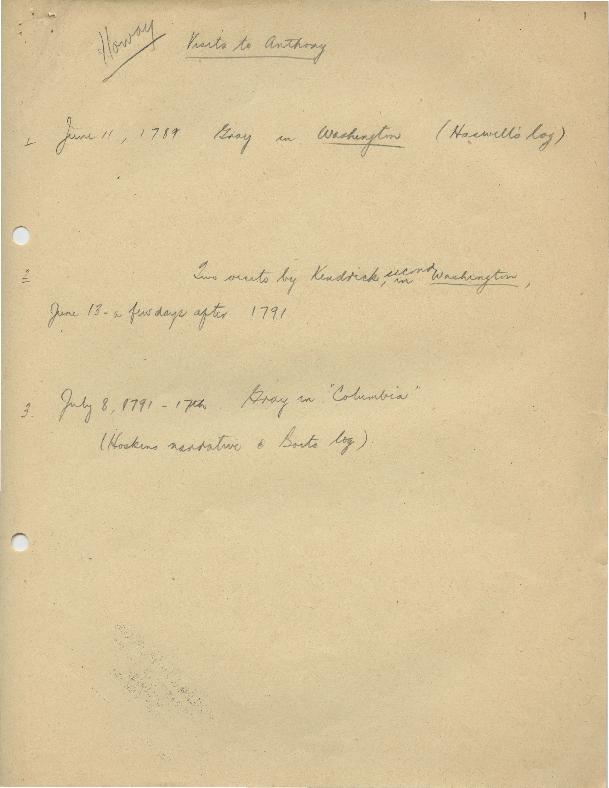 1
Howay Visits to Anthony
1 June 11, 1789 Gray in Washington (Haswell's log)
2 Two visits by Kendrick, second in Washington,
June 13 - a few days after 1791
3. July 8, 1791 - 17th Gray in "Columbia"
(Hoskins narrative & Boits log)